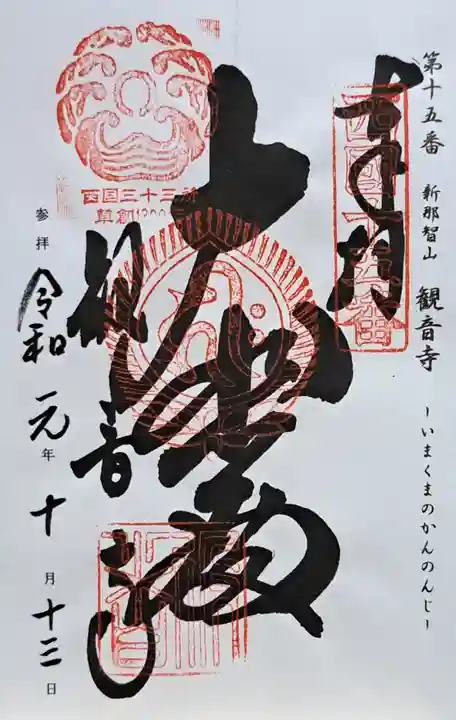 第十五番 新那智山 観音寺 -いまくまのかんのんじ-
奉拝
西國十五番
大悲殿
観音寺
西国三十三所
草創1300年
参拝 令和元年十月十三日